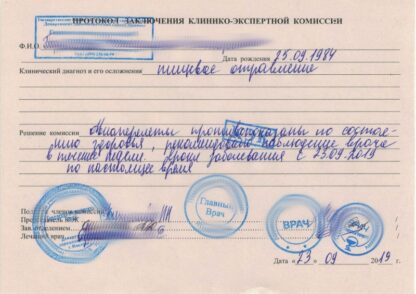 ПРОТОКОЛ ЗАКЛЮЧЕНИЯ КЛИНИКО-ЭКСПЕРТНОЙ КОМИССИИ
Ф.И.О.
Дата рождения 25.09.1984
Клинический диагноз и его осложнения пищевое отравление
Решение комиссии Авиаперелеты противопоказаны по состоя-
нию здоровья, рекомендовано наблюдение врача
в течение недели. Сроки заболевания с 23.09.2019
по настоящее время
члена комиссии
Председатель КЭК
Зав. отделением
Лечащ. врач
Главный Врач
ВРАЧ
Дата «23» 09 2019 г.